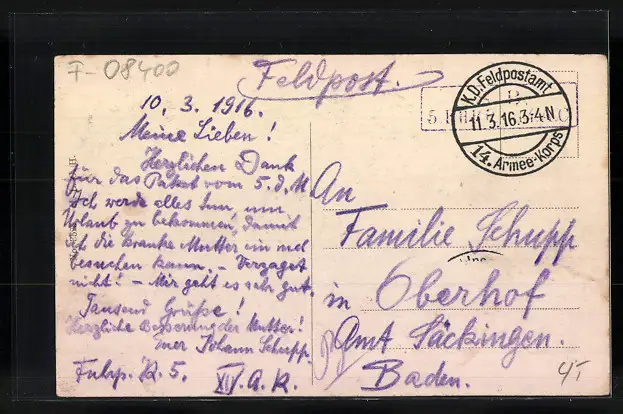 F-08400
Feldpost.
K.D. Feldpostamt
11.3.16.3-4N
14. Armee-Korps
10. 3. 1916.
Meine Lieben!
Herzlichen Dank
für das Paket vom 5. d. M.
Ich werde alles tun, um
Urlaub zu bekommen, damit
ich die kranke Mutter einmal
besuchen kann. - Verzaget
nicht! - Mir geht es sehr gut.
Tausend Grüße!
Herzliche Besserung der Mutter!
Euer Johann Schupp.
Fuhrp. K. 5. XIV. A. K.
An
Familie Schupp
in Oberhof
Amt Säckingen.
Baden.